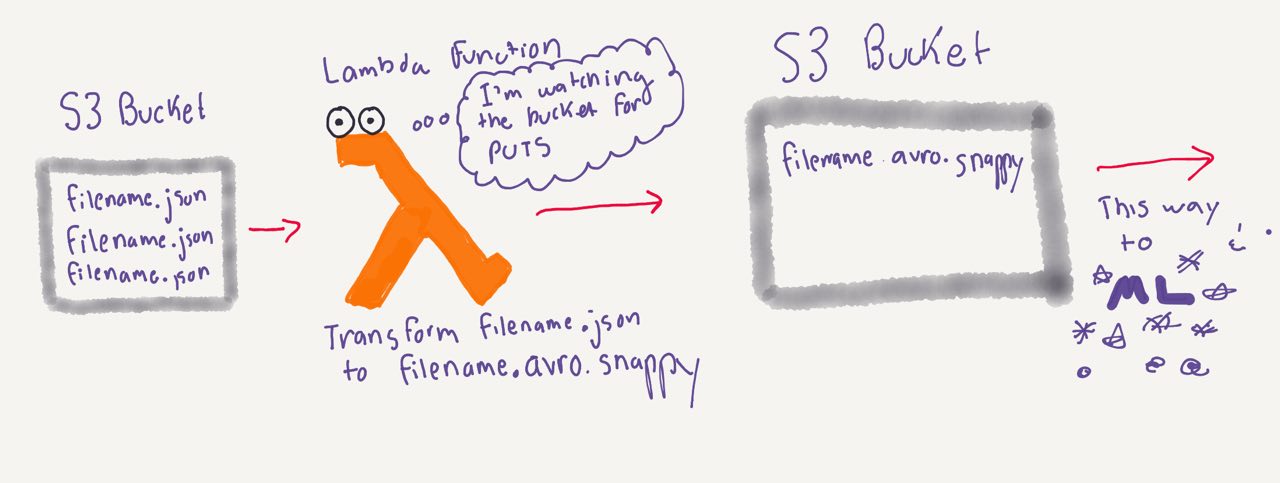 S3 Bucket
filename.json
filename.json
filename.json
Lambda Function
I'm watching
the bucket for
PUTS
Transform filename.json
to filename.avro.snappy
S3 Bucket
filename.avro.snappy
This way
to
ML